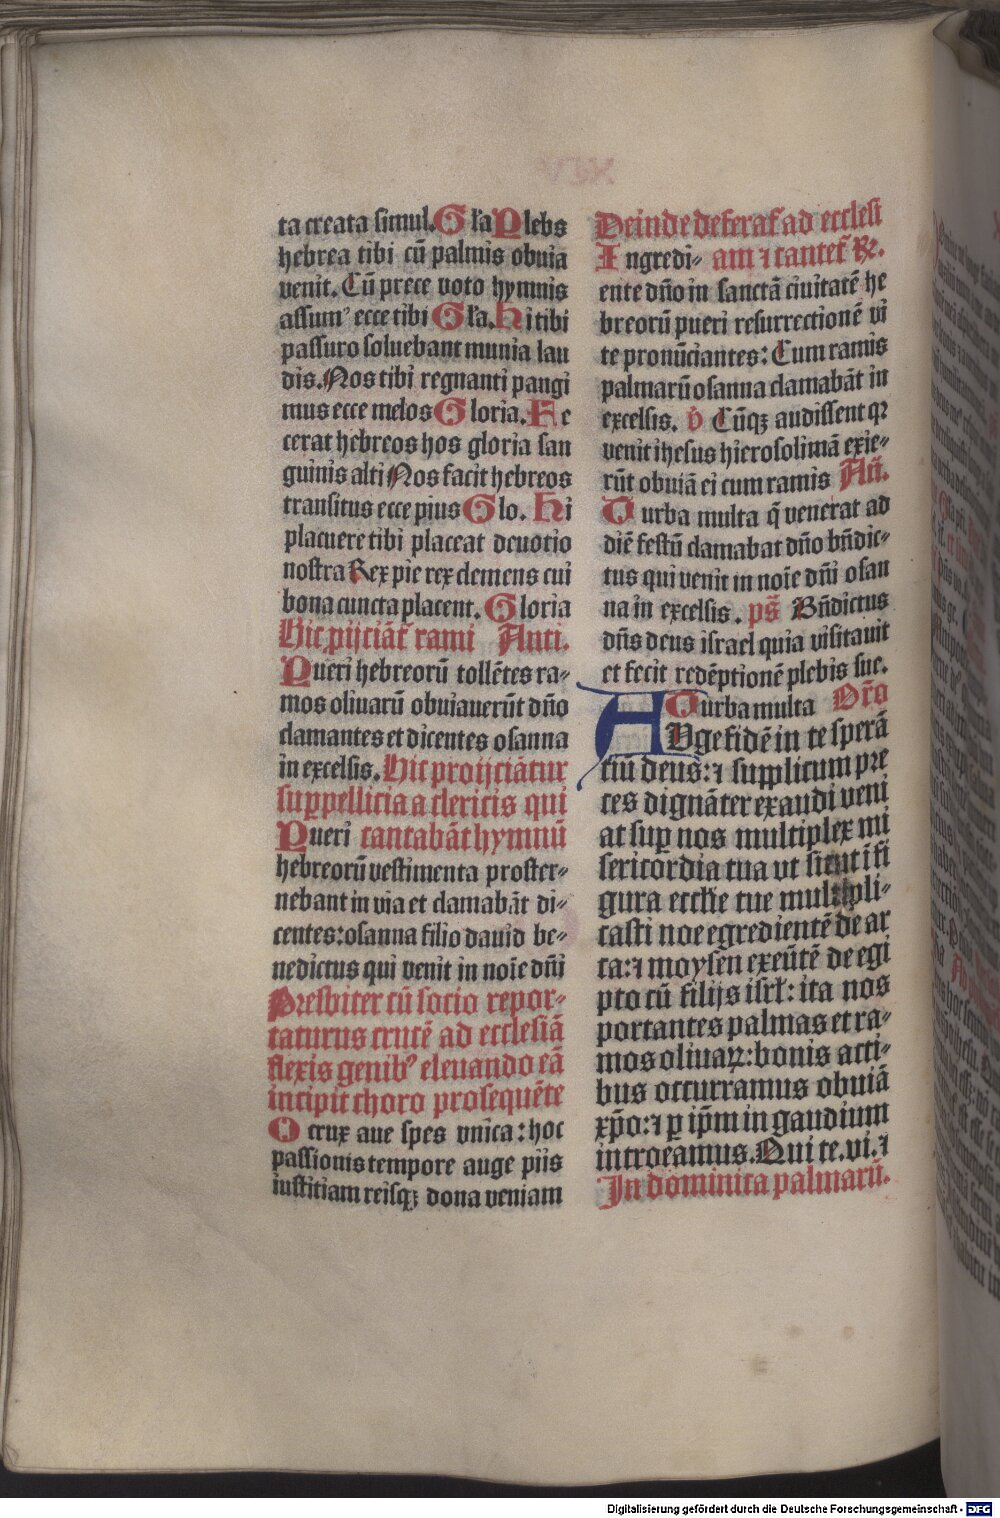 ta creata simul. Gl'a Plebs
hebrea tibi cū palmis obuia
uenit. Cū prece uoto hymnis
assum⁹ ecce tibi Gl'a. Hi tibi
passuro soluebant munia lau
dis. Nos tibi regnanti pangi
mus ecce melos Gloria. Fe
cerat hebreos hos gloria san
guinis alti Nos facit hebreos
transitus ecce pius Glo. Hi
placuere tibi placeat deuotio
nostra Rex pie rex clemens cui
bona cuncta placent. Gloria
Hic ꝓijciāt᷑ rami Anti.
Pueri hebreorū tollētes ra-
mos oliuarū obuiauerūt dño
clamantes et dicentes osanna
in excelsis. Hic proijciātur
suppellicia a clericis qui
Pueri cantabāt hymnū
hebreorū vestimenta proster-
nebant in via et clamabāt di-
centes: osanna filio dauid be-
nedictus qui venit in noīe dñi
Presbiter cū socio repor-
taturus crucē ad ecclesiā
flexis genib⁹ eleuando eā
incipit choro prosequēte
O crux aue spes vnica: hoc
passionis tempore auge piis
iustitiam reisqꝫ dona veniam
Deinde deferat᷑ ad ecclesi
Ingredi- am ⁊ cantet᷑ ℞.
ente dño in sanctā ciuitatē he
breorū pueri resurrectionē vi
te pronūciantes: Cum ramis
palmarū osanna clamabāt in
excelsis. ℣ Cūqꝫ audissent qꝛ
venit ihesus hierosolimā exie-
rūt obuiā ei cum ramis Añ.
Turba multa q̄ venerat ad
diē festū clamabat dño bñdic-
tus qui venit in noīe dñi osan
na in excelsis. ps̄ Bñdictus
dñs deus israel quia visitauit
et fecit redēptionē plebis sue.
Turba multa Or̄o
AUge fidē in te sperā
tiū deus: ⁊ supplicum pre
ces dignāter exaudi veni
at suꝑ nos multiplex mi
sericordia tua ut sicut ī fi
gura eccl'ie tue multipli-
casti noe egredientē de ar
ca: ⁊ moysen exeūtē de egi
pto cū filijs isrl': ita nos
portantes palmas et ra-
mos oliuaꝝ: bonis acti-
bus occurramus obuiā
xp̄o: ⁊ ꝑ ip̄m in gaudium
introeamus. Qui te. vi. ⁊
In dominica palmarū.
Digitalisierung gefördert durch die Deutsche Forschungsgemeinschaft - DFG